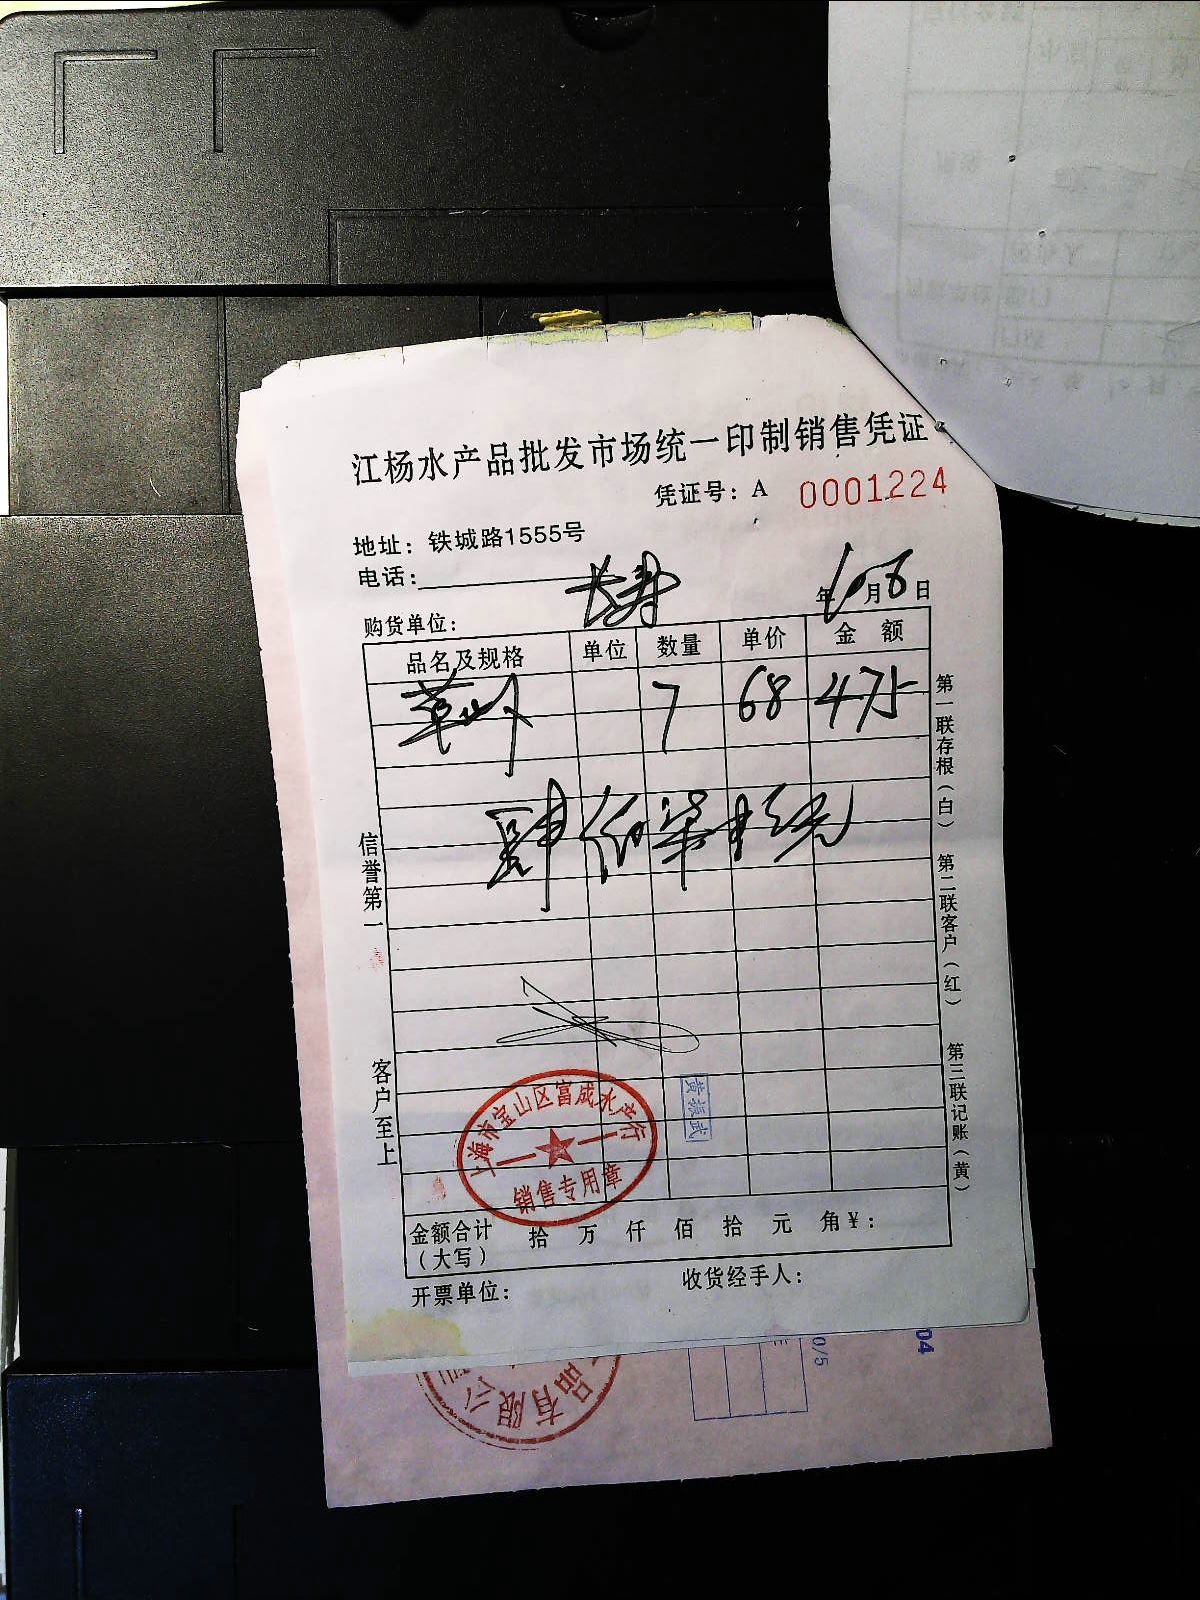 江杨水产品批发市场统一印制销售凭证
凭证号：A 0001224
地址：铁城路1555号
电话：
购货单位： 大寿 年 10 月 6 日
品名及规格 单位 数量 单价 金 额
草虾 7 68 475
肆佰柒拾五元
信誉第一
客户至上
第一联存根（白）
第二联客户（红）
第三联记账（黄）
上海市宝山区富成水产行
销售专用章
黄振武
金额合计（大写） 拾 万 仟 佰 拾 元 角￥：
开票单位： 收货经手人：
品有限公
0/5
04